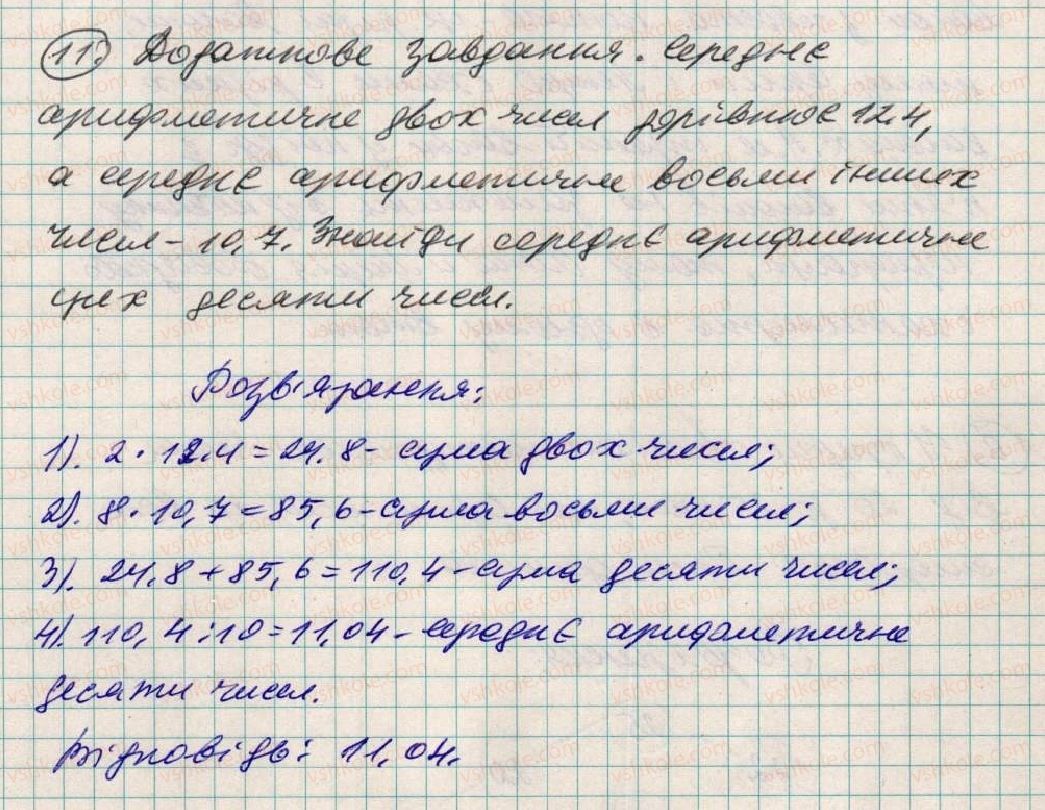 11) Додаткове завдання. Середнє
арифметичне двох чисел дорівнює 12.4,
а середнє арифметичне восьми інших
чисел - 10,7. Знайди середнє арифметичне
цих десяти чисел.
Розв'язання:
1). 2 · 12.4 = 24.8 - сума двох чисел;
2). 8 · 10,7 = 85,6 - сума восьми чисел;
3). 24.8 + 85,6 = 110,4 - сума десяти чисел;
4). 110,4 : 10 = 11,04 - середнє арифметичне
десяти чисел.
Відповідь: 11.04.